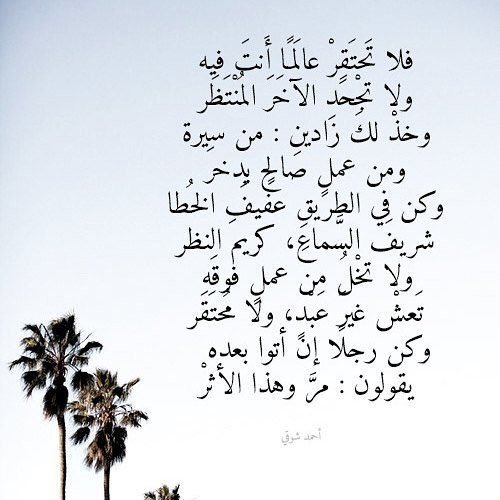 فلا تَحتَقِرْ عالَمًا أَنتَ فِيه
ولا تَجْحَدِ الآخَرَ المُنْتَظَر
وخذْ لكَ زَادينِ : من سيرة
ومن عملٍ صَالحٍ يدخر
وكن في الطريقِ عفيفَ الخُطا
شريفَ السَّماعِ، كريمَ النظر
ولا تخْلُ من عملٍ فوقَه
تَعشْ غيرَ عَبْدٍ، ولا مُحتَقَر
وكن رجلًا إنْ أتوا بعده
يقولون : مرَّ وهذا الأثرْ
أحمد شوقي